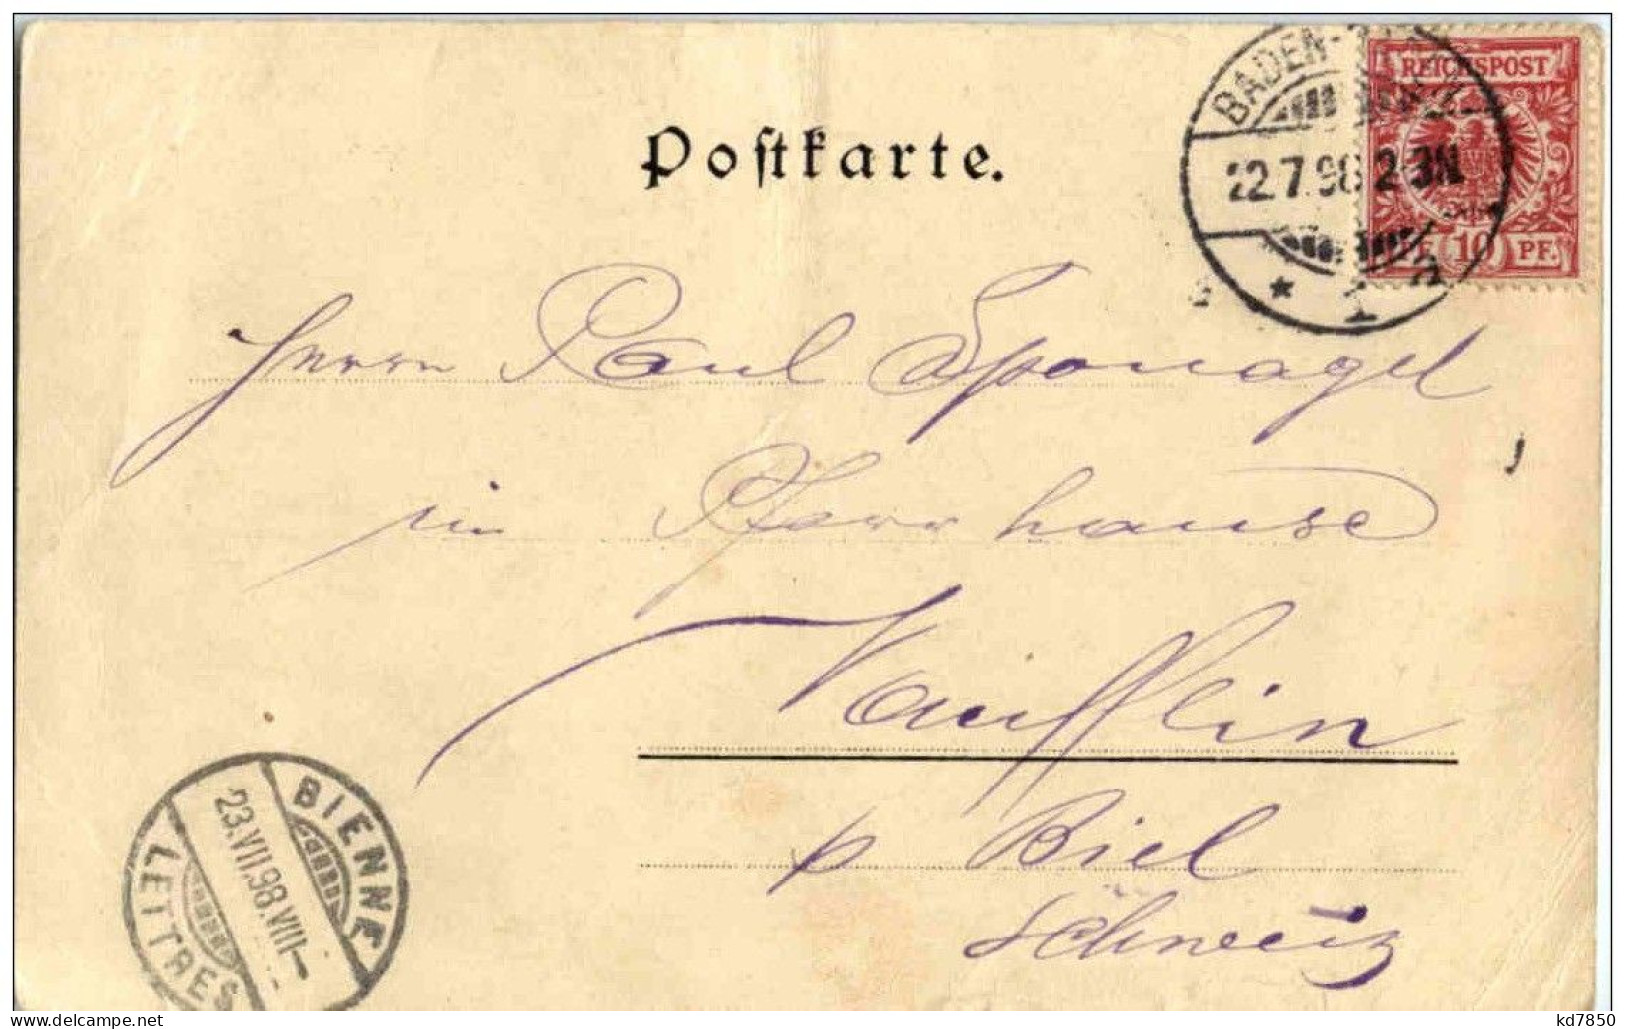 Postkarte.
BADEN-
22.7.98 2-3N
* 1
REICHSPOST
10 PF.
Herrn Paul Sponagel
im Pfarrhause
Vauffelin
p Biel
Schweiz
BIENNE
23.VII.98.VIII-
LETTRES
kd7850